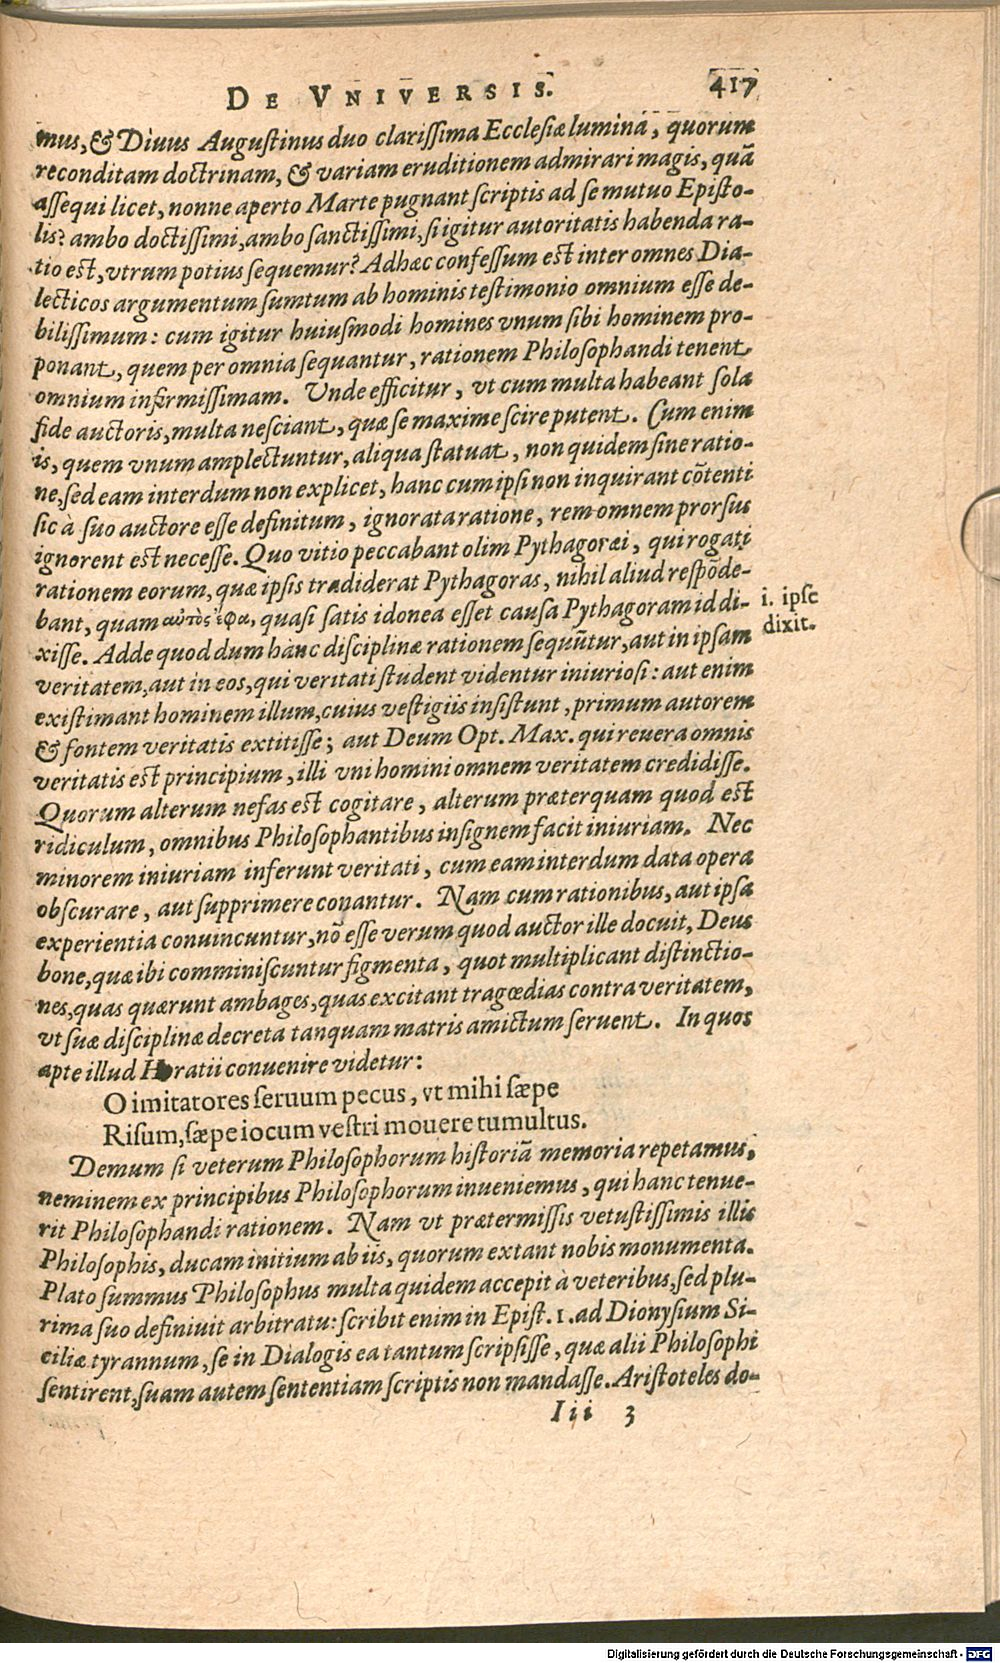 DE VNIVERSIS. 417
mus, & Diuus Augustinus duo clarissima Ecclesiæ lumina, quorum
reconditam doctrinam, & variam eruditionem admirari magis, quā
assequi licet, nonne aperto Marte pugnant scriptis ad se mutuo Episto-
lis? ambo doctissimi, ambo sanctissimi, si igitur autoritatis habenda ra-
tio est, vtrum potius sequemur? Adhæc confessum est inter omnes Dia-
lecticos argumentum sumtum ab hominis testimonio omnium esse de-
bilissimum: cum igitur huiusmodi homines vnum sibi hominem pro-
ponant, quem per omnia sequantur, rationem Philosophandi tenent
omnium infirmissimam. Unde efficitur, vt cum multa habeant sola
fide auctoris, multa nesciant, quæ se maxime scire putent. Cum enim
is, quem vnum amplectuntur, aliqua statuat, non quidem sine ratio-
ne, sed eam interdum non explicet, hanc cum ipsi non inquirant cōtenti
sic à suo auctore esse definitum, ignorata ratione, rem omnem prorsus
ignorent est necesse. Quo vitio peccabant olim Pythagoræi, qui rogati
rationem eorum, quæ ipsis tradiderat Pythagoras, nihil aliud respōde-
bant, quam αὐτὸς ἔφα, quasi satis idonea esset causa Pythagoram id di-
i. ipse
dixit.
xisse. Adde quod dum hanc disciplinæ rationem sequūtur, aut in ipsam
veritatem, aut in eos, qui veritati student videntur iniuriosi: aut enim
existimant hominem illum, cuius vestigiis insistunt, primum autorem
& fontem veritatis extitisse; aut Deum Opt. Max. qui reuera omnis
veritatis est principium, illi vni homini omnem veritatem credidisse.
Quorum alterum nefas est cogitare, alterum præterquam quod est
ridiculum, omnibus Philosophantibus insignem facit iniuriam. Nec
minorem iniuriam inferunt veritati, cum eam interdum data opera
obscurare, aut supprimere conantur. Nam cum rationibus, aut ipsa
experientia conuincuntur, nō esse verum quod auctor ille docuit, Deus
bone, quæ ibi comminiscuntur figmenta, quot multiplicant distinctio-
nes, quas quærunt ambages, quas excitant tragœdias contra veritatem,
vt suæ disciplinæ decreta tanquam matris amictum seruent. In quos
apte illud Horatii conuenire videtur:
O imitatores seruum pecus, vt mihi sæpe
Risum, sæpe iocum vestri mouere tumultus.
Demum si veterum Philosophorum historiā memoria repetamus,
neminem ex principibus Philosophorum inueniemus, qui hanc tenue-
rit Philosophandi rationem. Nam vt prætermissis vetustissimis illis
Philosophis, ducam initium ab iis, quorum extant nobis monumenta.
Plato summus Philosophus multa quidem accepit à veteribus, sed plu-
rima suo definiuit arbitratu: scribit enim in Epist. 1. ad Dionysium Si-
ciliæ tyrannum, se in Dialogis ea tantum scripsisse, quæ alii Philosophi
sentirent, suam autem sententiam scriptis non mandasse. Aristoteles do-
Iii 3
Digitalisierung gefördert durch die Deutsche Forschungsgemeinschaft - DFG